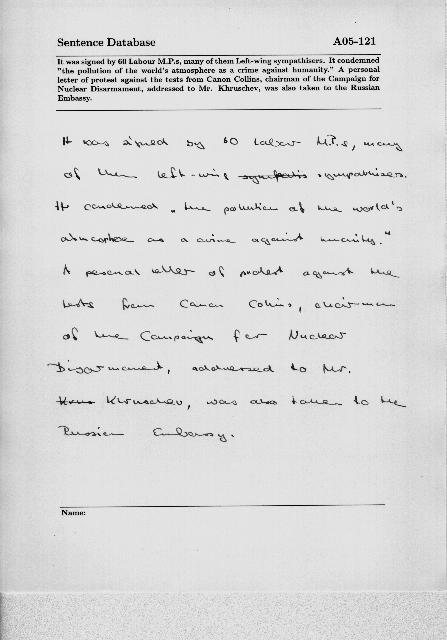 Sentence Database A05-121
It was signed by 60 Labour M.P.s, many of them Left-wing sympathisers. It condemned
"the pollution of the world's atmosphere as a crime against humanity." A personal
letter of protest against the tests from Canon Collins, chairman of the Campaign for
Nuclear Disarmament, addressed to Mr. Khruschev, was also taken to the Russian
Embassy.
It was signed by 60 Labour M.P.s, many
of them left-wing sympathis sympathisers.
It condemned "the pollution of the world's
atmosphere as a crime against humanity."
A personal letter of protest against the
tests from Canon Collins, chairman
of the Campaign for Nuclear
Disarmament, addressed to Mr.
Khrus Khruschev, was also taken to the
Russian Embassy.
Name: